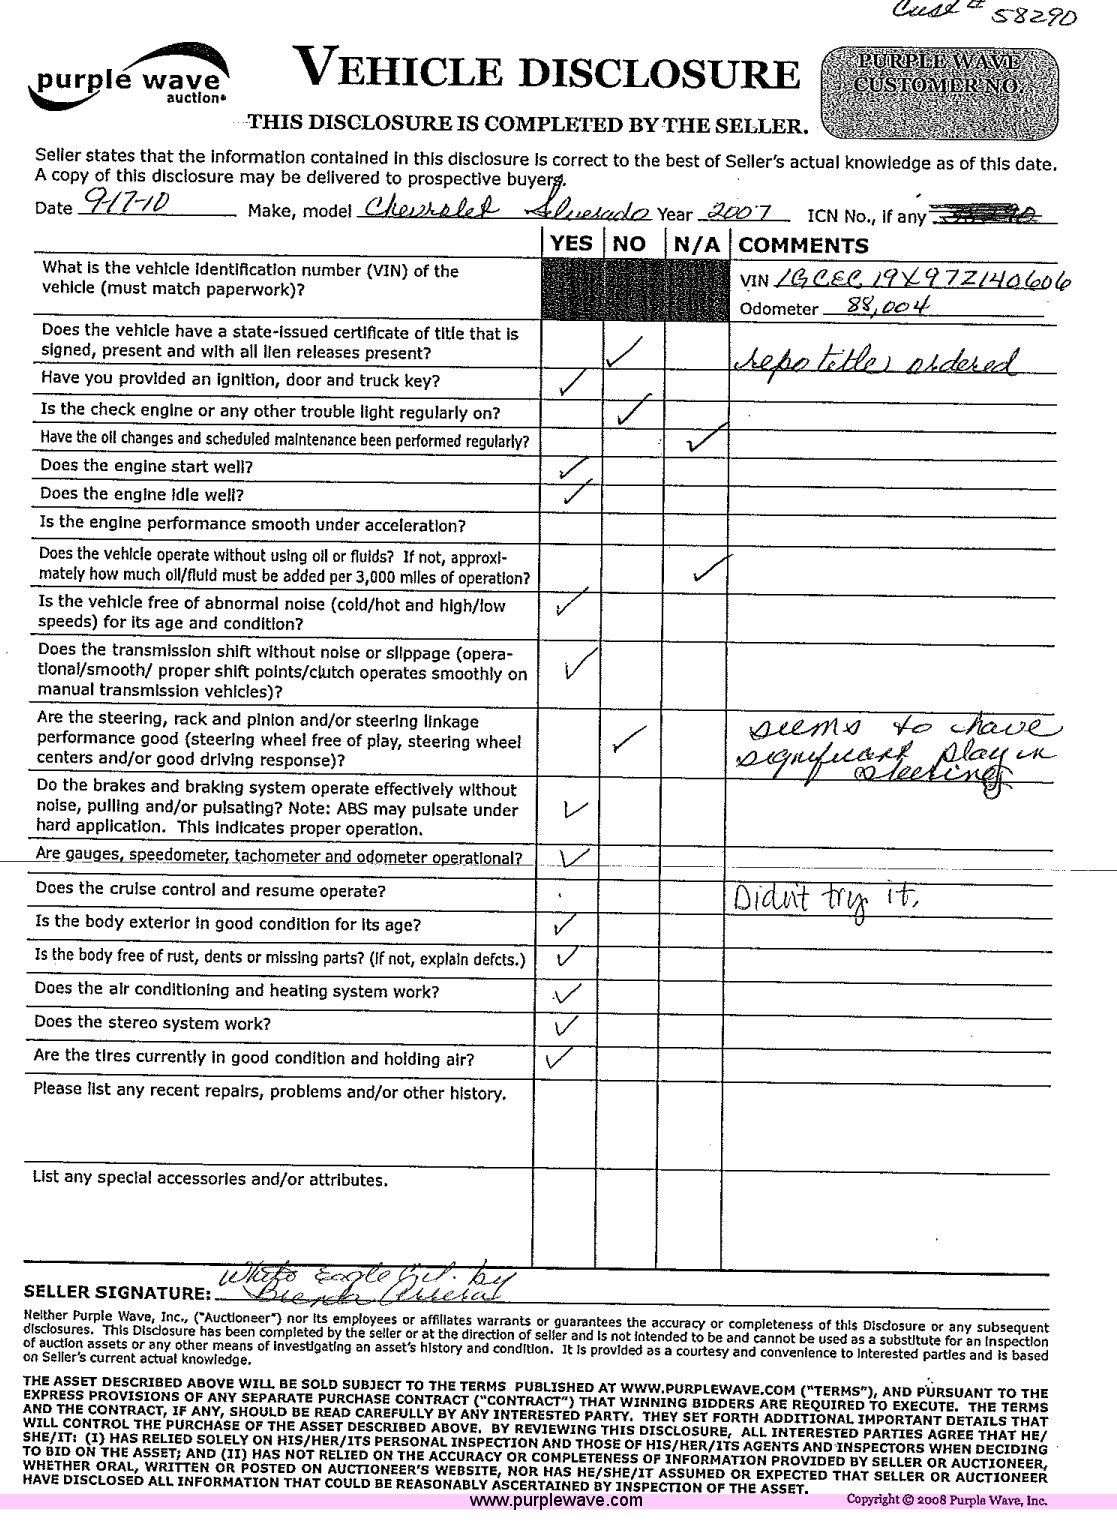 Cust # 58290
purple wave
auction
VEHICLE DISCLOSURE
PURPLE WAVE
CUSTOMER NO.
THIS DISCLOSURE IS COMPLETED BY THE SELLER.
Seller states that the information contained in this disclosure is correct to the best of Seller's actual knowledge as of this date.
A copy of this disclosure may be delivered to prospective buyers.
Date 9-17-10 Make, model Chevrolet Silverado Year 2007 ICN No., if any
YES NO N/A COMMENTS
What is the vehicle identification number (VIN) of the
vehicle (must match paperwork)?
VIN 1GCEC19X97Z140606
Odometer 88,004
Does the vehicle have a state-issued certificate of title that is
signed, present and with all lien releases present? ✓ repo title ordered
Have you provided an ignition, door and truck key? ✓
Is the check engine or any other trouble light regularly on? ✓
Have the oil changes and scheduled maintenance been performed regularly? ✓
Does the engine start well? ✓
Does the engine idle well? ✓
Is the engine performance smooth under acceleration?
Does the vehicle operate without using oil or fluids? If not, approxi-
mately how much oil/fluid must be added per 3,000 miles of operation? ✓
Is the vehicle free of abnormal noise (cold/hot and high/low
speeds) for its age and condition? ✓
Does the transmission shift without noise or slippage (opera-
tional/smooth/ proper shift points/clutch operates smoothly on
manual transmission vehicles)? ✓
Are the steering, rack and pinion and/or steering linkage
performance good (steering wheel free of play, steering wheel
centers and/or good driving response)? ✓
seems to have
significant play in
steering
Do the brakes and braking system operate effectively without
noise, pulling and/or pulsating? Note: ABS may pulsate under
hard application. This indicates proper operation. ✓
Are gauges, speedometer, tachometer and odometer operational? ✓
Does the cruise control and resume operate? Didn't try it.
Is the body exterior in good condition for its age? ✓
Is the body free of rust, dents or missing parts? (if not, explain defcts.) ✓
Does the air conditioning and heating system work? ✓
Does the stereo system work? ✓
Are the tires currently in good condition and holding air? ✓
Please list any recent repairs, problems and/or other history.
List any special accessories and/or attributes.
White Eagle C.U. by
SELLER SIGNATURE: Brenda
Neither Purple Wave, Inc., ("Auctioneer") nor its employees or affiliates warrants or guarantees the accuracy or completeness of this Disclosure or any subsequent
disclosures. This Disclosure has been completed by the seller or at the direction of seller and is not intended to be and cannot be used as a substitute for an inspection
of auction assets or any other means of investigating an asset's history and condition. It is provided as a courtesy and convenience to interested parties and is based
on Seller's current actual knowledge.
THE ASSET DESCRIBED ABOVE WILL BE SOLD SUBJECT TO THE TERMS PUBLISHED AT WWW.PURPLEWAVE.COM ("TERMS"), AND PURSUANT TO THE
EXPRESS PROVISIONS OF ANY SEPARATE PURCHASE CONTRACT ("CONTRACT") THAT WINNING BIDDERS ARE REQUIRED TO EXECUTE. THE TERMS
AND THE CONTRACT, IF ANY, SHOULD BE READ CAREFULLY BY ANY INTERESTED PARTY. THEY SET FORTH ADDITIONAL IMPORTANT DETAILS THAT
WILL CONTROL THE PURCHASE OF THE ASSET DESCRIBED ABOVE. BY REVIEWING THIS DISCLOSURE, ALL INTERESTED PARTIES AGREE THAT HE/
SHE/IT: (I) HAS RELIED SOLELY ON HIS/HER/ITS PERSONAL INSPECTION AND THOSE OF HIS/HER/ITS AGENTS AND INSPECTORS WHEN DECIDING
TO BID ON THE ASSET; AND (II) HAS NOT RELIED ON THE ACCURACY OR COMPLETENESS OF INFORMATION PROVIDED BY SELLER OR AUCTIONEER,
WHETHER ORAL, WRITTEN OR POSTED ON AUCTIONEER'S WEBSITE, NOR HAS HE/SHE/IT ASSUMED OR EXPECTED THAT SELLER OR AUCTIONEER
HAVE DISCLOSED ALL INFORMATION THAT COULD BE REASONABLY ASCERTAINED BY INSPECTION OF THE ASSET.
www.purplewave.com
Copyright © 2008 Purple Wave, Inc.